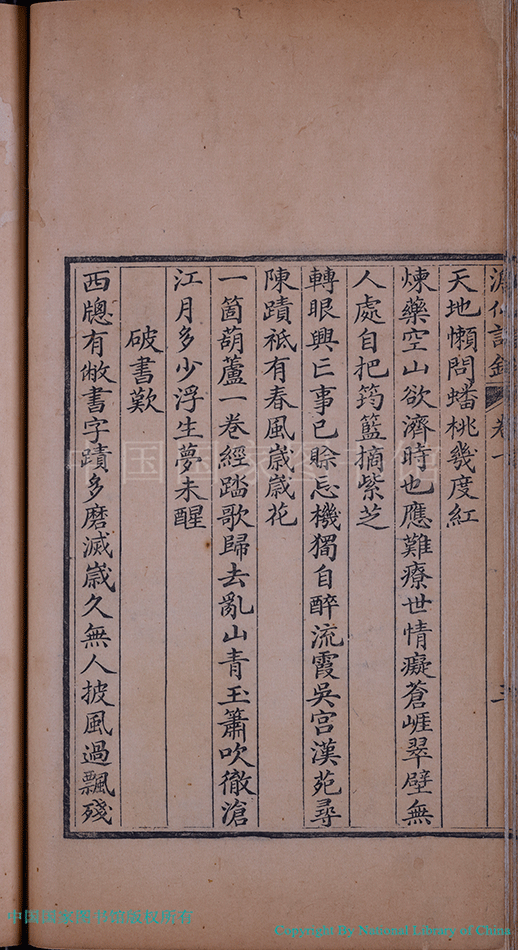 卷一
天地懶問蟠桃幾度紅
煉藥空山欲濟時也應難療世情癡蒼崕翠壁無
人處自把筠籃摘紫芝
轉眼興亡事已賒忘機獨自醉流霞吳宫漢苑尋
陳蹟祇有春風歲歲花
一箇葫蘆一卷經踏歌歸去亂山青玉簫吹徹滄
江月多少浮生夢未醒
破書歎
西牕有敝書字蹟多磨滅歲久無人披風過飄殘
中国国家图书馆
中国国家图书馆版权所有
Copyright By National Library of China